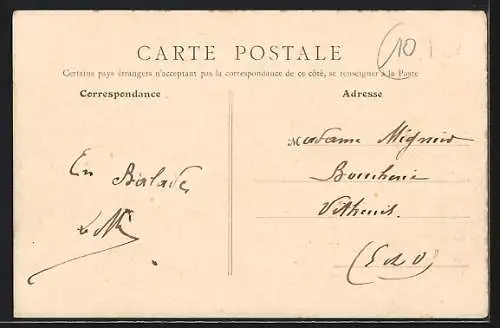 10
CARTE POSTALE
Certains pays étrangers n'acceptant pas la correspondance de ce côté, se renseigner à la Poste
Correspondance
Adresse
En Balade
Madame
Boucherie